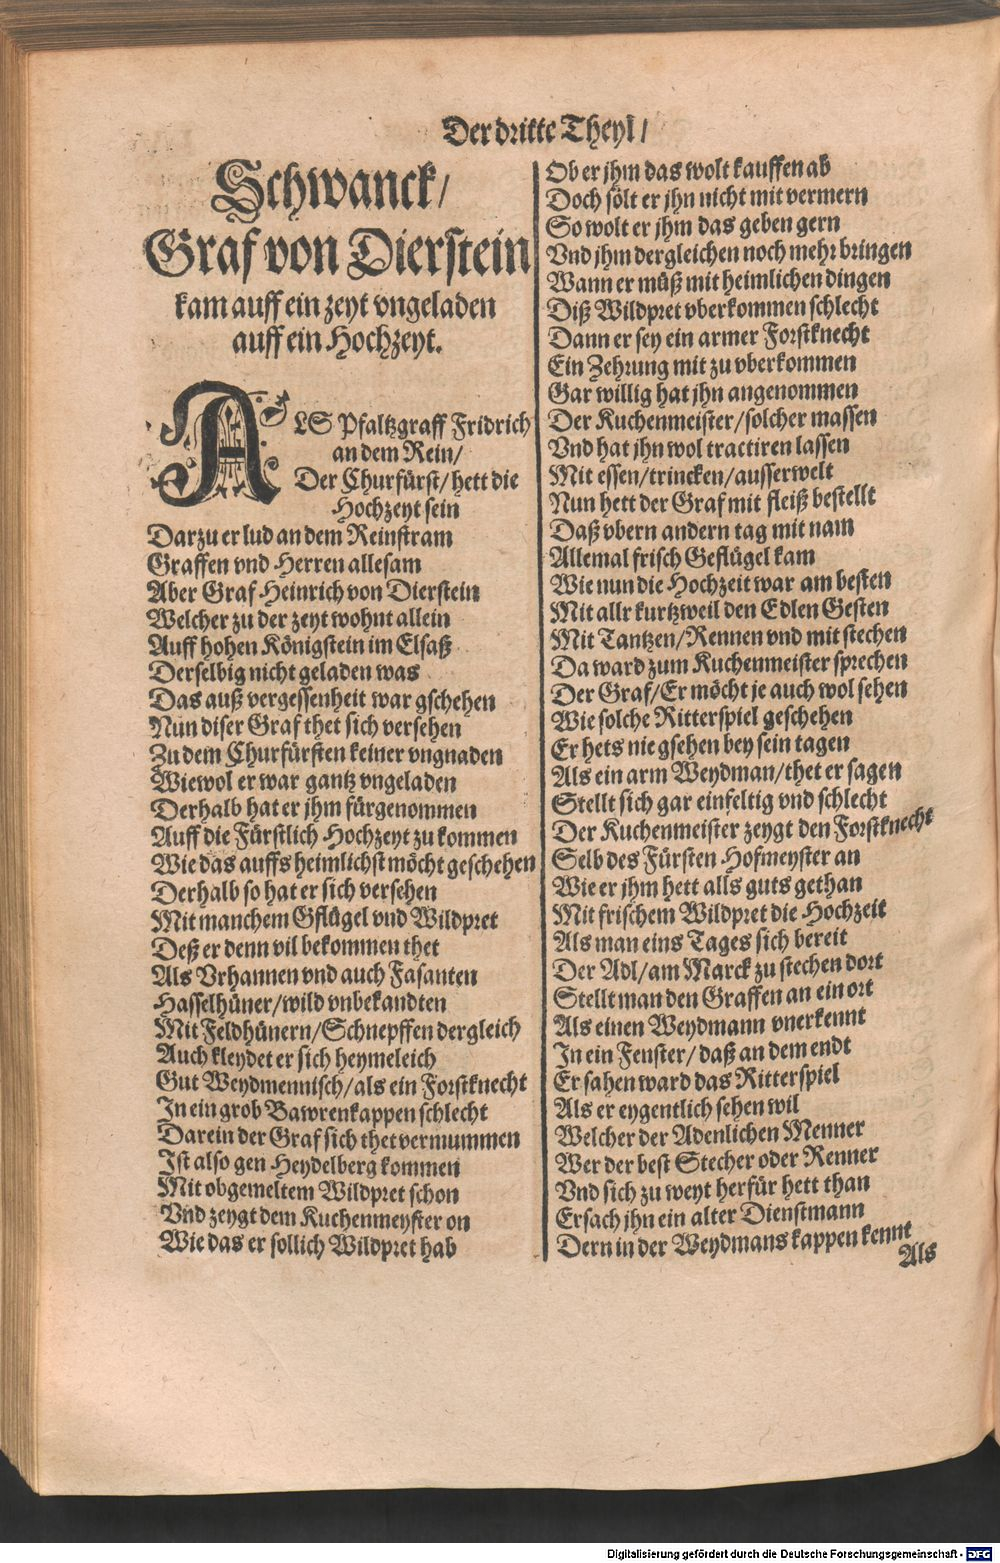 Der dritte Theyl /
Schwanck /
Graf von Dierstein
kam auff ein zeyt vngeladen
auff ein Hochzeyt.
ALS Pfaltzgraff Fridrich
an dem Rein /
Der Churfürst / hett die
Hochzeyt sein
Darzu er lud an dem Reinstram
Graffen vnd Herren allesam
Aber Graf Heinrich von Dierstein
Welcher zu der zeyt wohnt allein
Auff hohen Königstein im Elsaß
Derselbig nicht geladen was
Das auß vergessenheit war gschehen
Nun diser Graf thet sich versehen
Zu dem Churfürsten keiner vngnaden
Wiewol er war gantz vngeladen
Derhalb hat er jhm fürgenommen
Auff die Fürstlich Hochzeyt zu kommen
Wie das auffs heimlichst möcht geschehen
Derhalb so hat er sich versehen
Mit manchem Gflügel vnd Wildpret
Deß er denn vil bekommen thet
Als Vrhannen vnd auch Fasanten
Hasselhüner / wild vnbekandten
Mit Feldhünern / Schnepffen dergleich
Auch kleydet er sich heymeleich
Gut Weydmennisch / als ein Forstknecht
In ein grob Bawrenkappen schlecht
Darein der Graf sich thet vermummen
Ist also gen Heydelberg kommen
Mit obgemeltem Wildpret schon
Vnd zeygt dem Kuchenmeyster on
Wie das er sollich Wildpret hab
Ob er jhm das wolt kauffen ab
Doch sölt er jhn nicht mit vermern
So wolt er jhm das geben gern
Vnd jhm dergleichen noch mehr bringen
Wann er müß mit heimlichen dingen
Diß Wildpret vberkommen schlecht
Dann er sey ein armer Forstknecht
Ein Zehrung mit zu vberkommen
Gar willig hat jhn angenommen
Der Kuchenmeister / solcher massen
Vnd hat jhn wol tractiren lassen
Mit essen / trincken / ausserwelt
Nun hett der Graf mit fleiß bestellt
Daß vbern andern tag mit nam
Allemal frisch Geflügel kam
Wie nun die Hochzeit war am besten
Mit allr kurtzweil den Edlen Gesten
Mit Tantzen / Rennen vnd mit stechen
Da ward zum Kuchenmeister sprechen
Der Graf / Er möcht je auch wol sehen
Wie solche Ritterspiel geschehen
Er hets nie gsehen bey sein tagen
Als ein arm Weydman / thet er sagen
Stellt sich gar einfeltig vnd schlecht
Der Kuchenmeister zeygt den Forstknecht
Selb des Fürsten Hofmeyster an
Wie er jhm hett alls guts gethan
Mit frischem Wildpret die Hochzeit
Als man eins Tages sich bereit
Der Adl / am Marck zu stechen dort
Stellt man den Graffen an ein ort
Als einen Weydmann vnerkennt
In ein Fenster / daß an dem endt
Er sahen ward das Ritterspiel
Als er eygentlich sehen wil
Welcher der Adenlichen Menner
Wer der best Stecher oder Renner
Vnd sich zu weyt herfür hett than
Ersach jhn ein alter Dienstmann
Dern in der Weydmans kappen kennt
Als
Digitalisierung gefördert durch die Deutsche Forschungsgemeinschaft - DFG